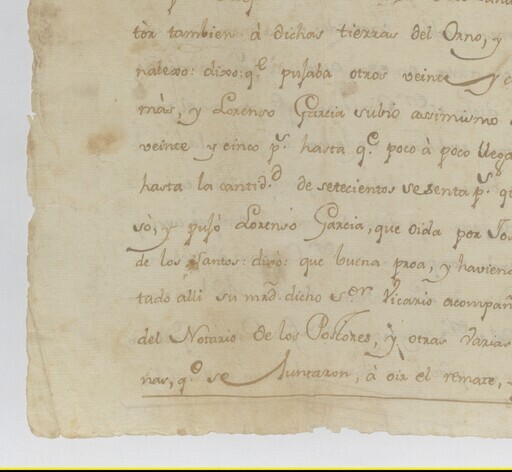 tòr tambien à dichas tierras del Orno, y
nalexo: dixo: q.e pujaba otros veinte y c
màs, y Lorenso Garcia subiò assimismo
veinte y cinco p.s hasta q.e poco à poco llega
hasta la cantid.d de setecientos sesenta p.s q
sò, y pujò Lorenso Garcia, que oida por Jos
de los Santos: dixo: que buena proa, y haviend
tado alli su mrd. dicho S.er Vicario acompañ
del Notario de los Postores, y otras varias
nas, q.e se Juntaron, à oir el remate,